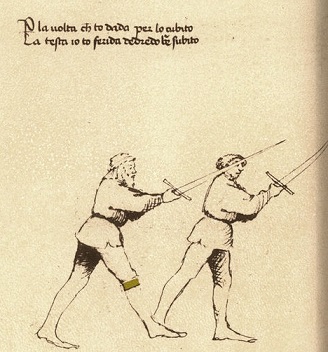 P la uolta ch to dada per lo cubito
La testa io to ferida dedredo be subito